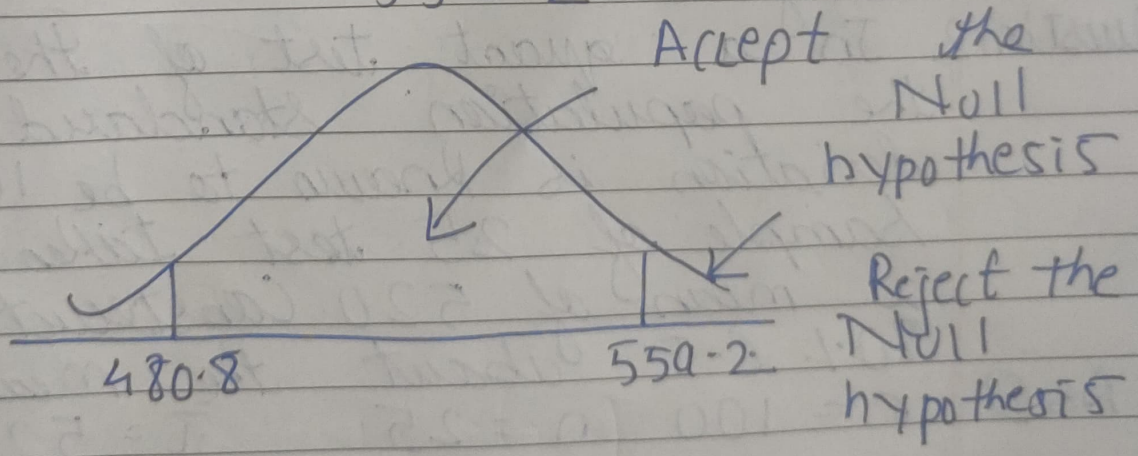 Accept the
Null
hypothesis
Reject the
Null
hypothesis
480.8
559.2